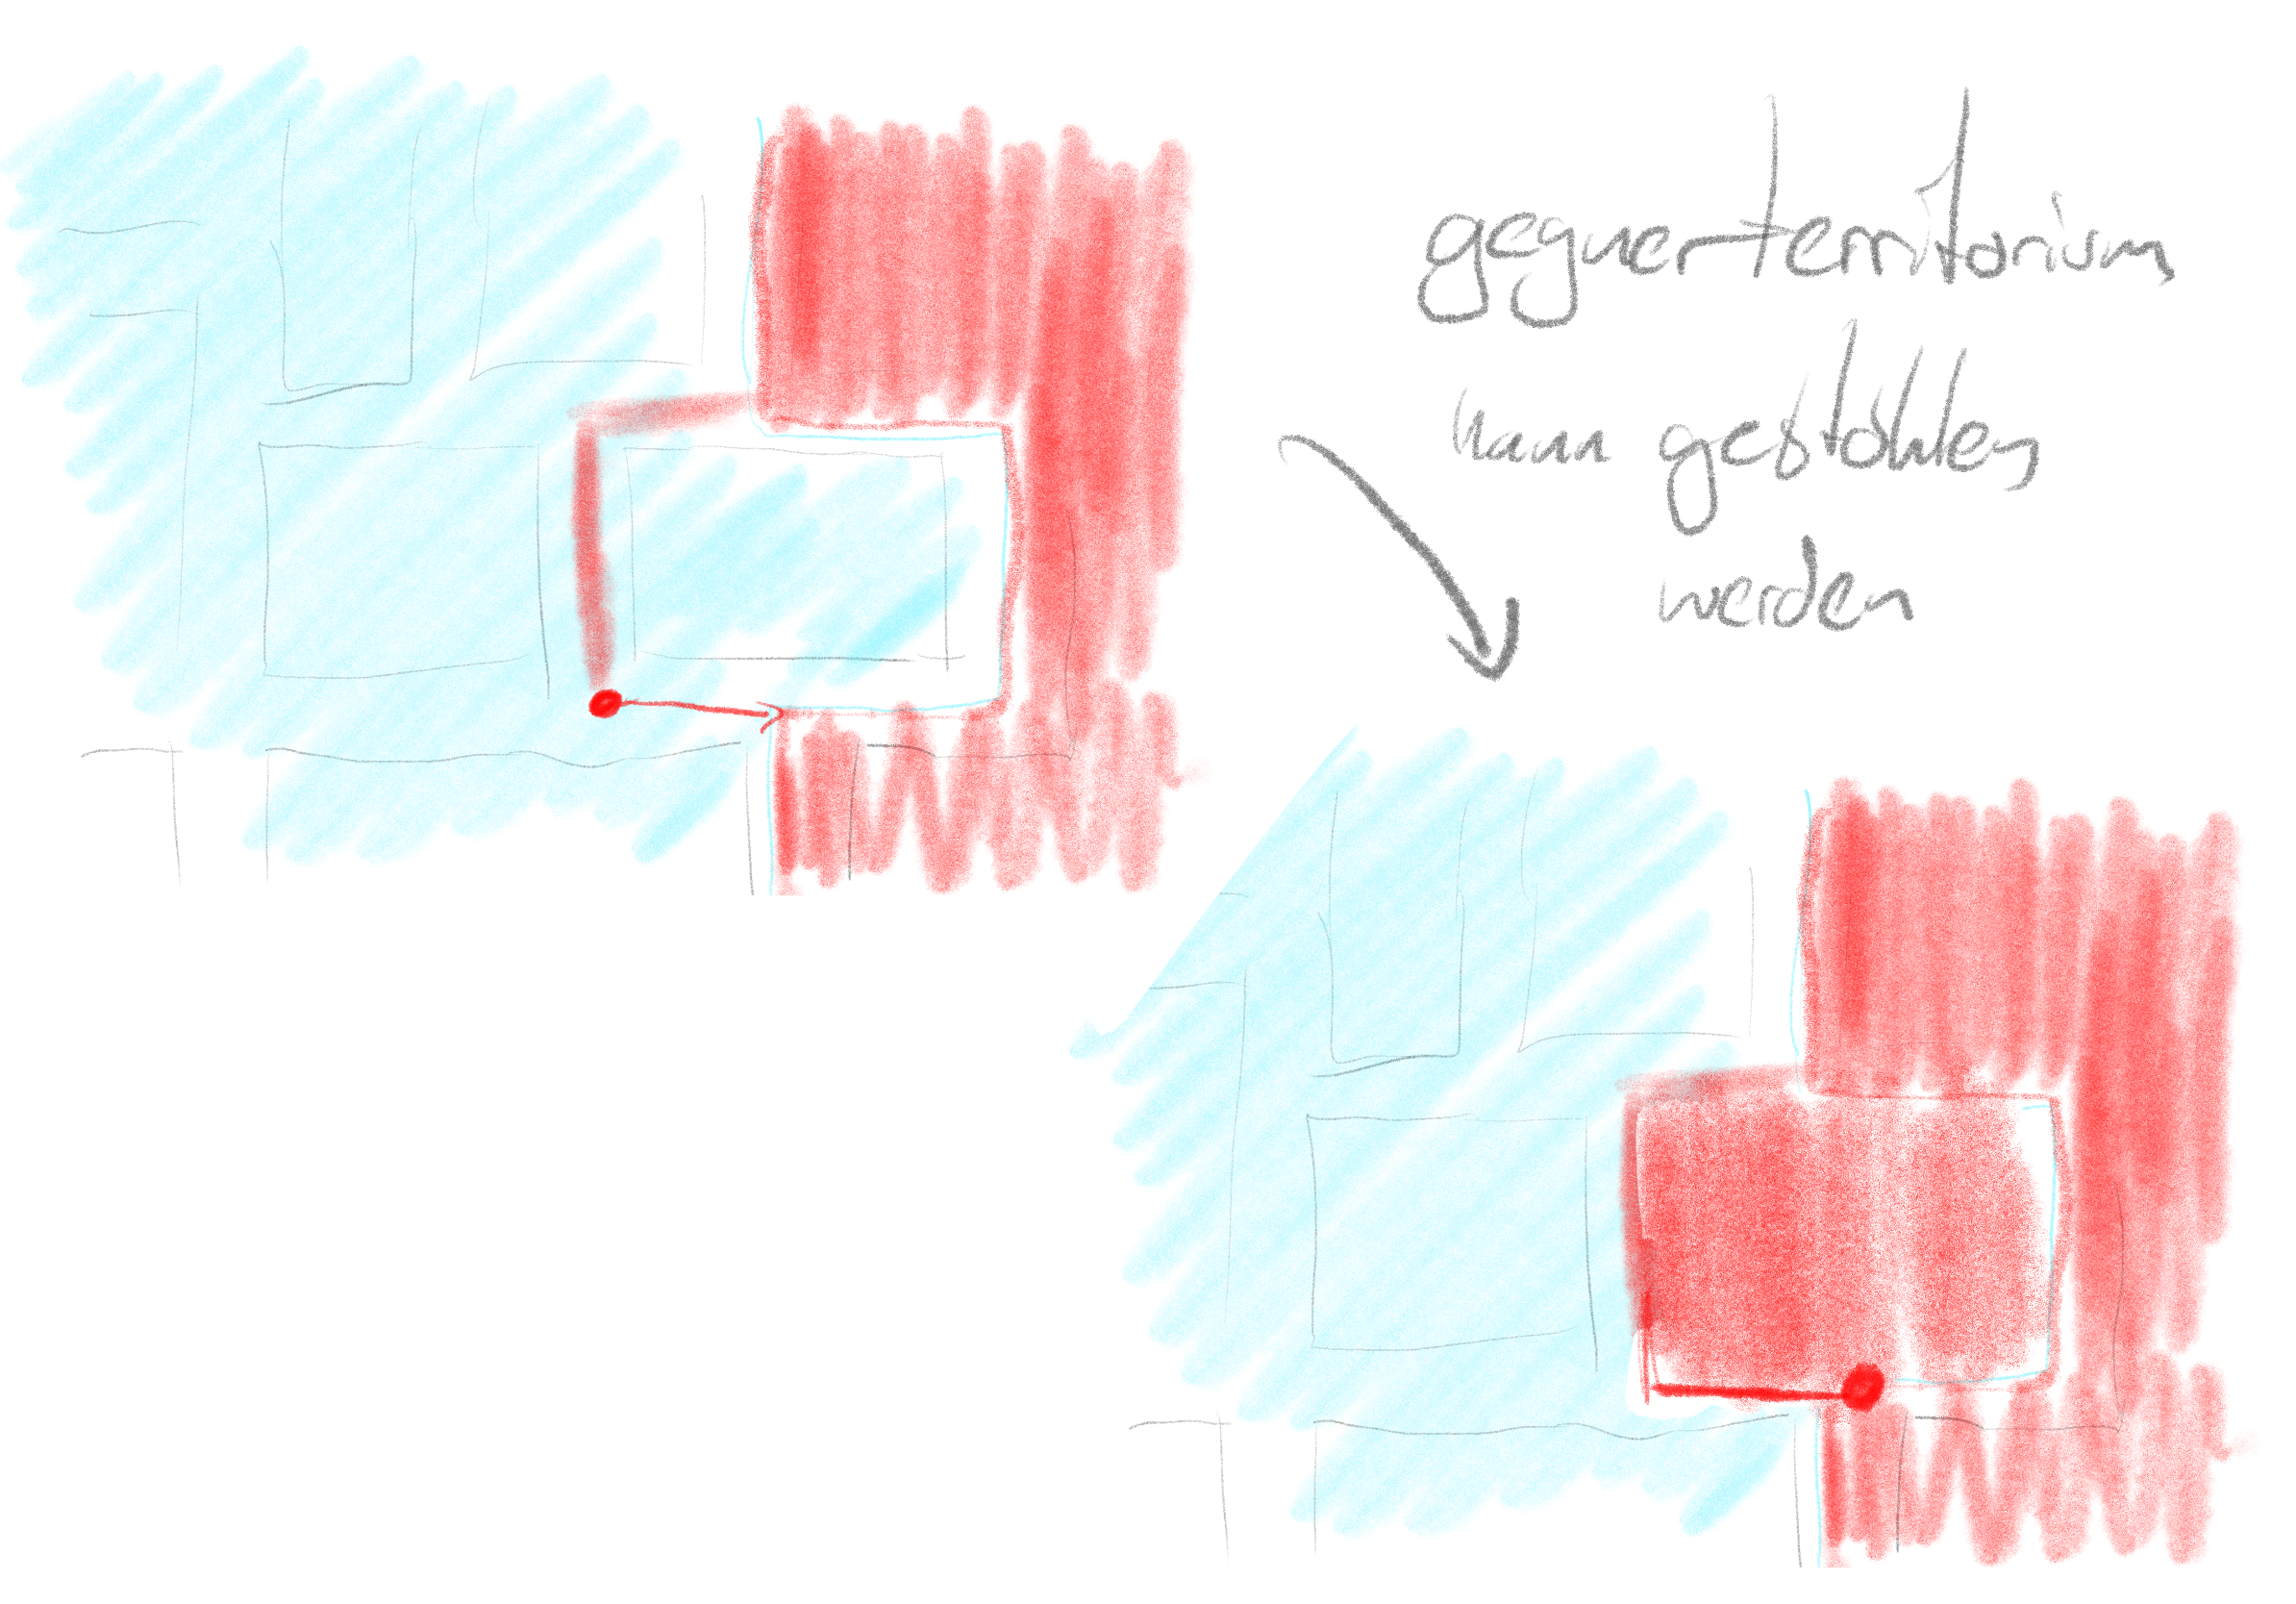 gegnerterritorium
kann gestohlen
werden